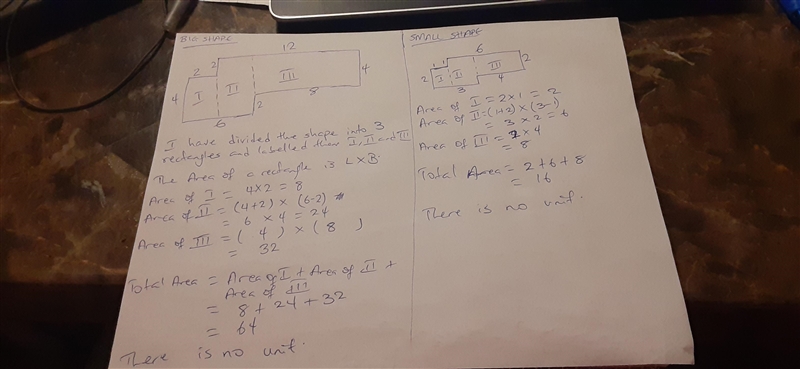 BIG SHAPE
12
2
2
I
II
III
4
4
2
8
6
I have divided the shape into 3
rectangles and labelled them I, II and III
The Area of a rectangle is L×B.
Area of I = 4×2 = 8
Area of II = (4+2) × (6-2)
= 6 × 4 = 24
Area of III = ( 4 ) × ( 8 )
= 32
Total Area = Area of I + Area of II +
Area of III
= 8 + 24 + 32
= 64
There is no unit.
SMALL SHAPE
6
1
1
2
I
II
III
2
4
3
Area of I = 2×1 = 2
Area of II = (1+2) × (3-1)
= 3 × 2 = 6
Area of III = 2 × 4
= 8
Total Area = 2+6+8
= 16
There is no unit.